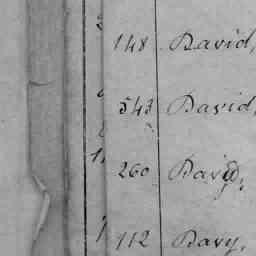 148 David,
543 David,
260 David,
112 Davy,